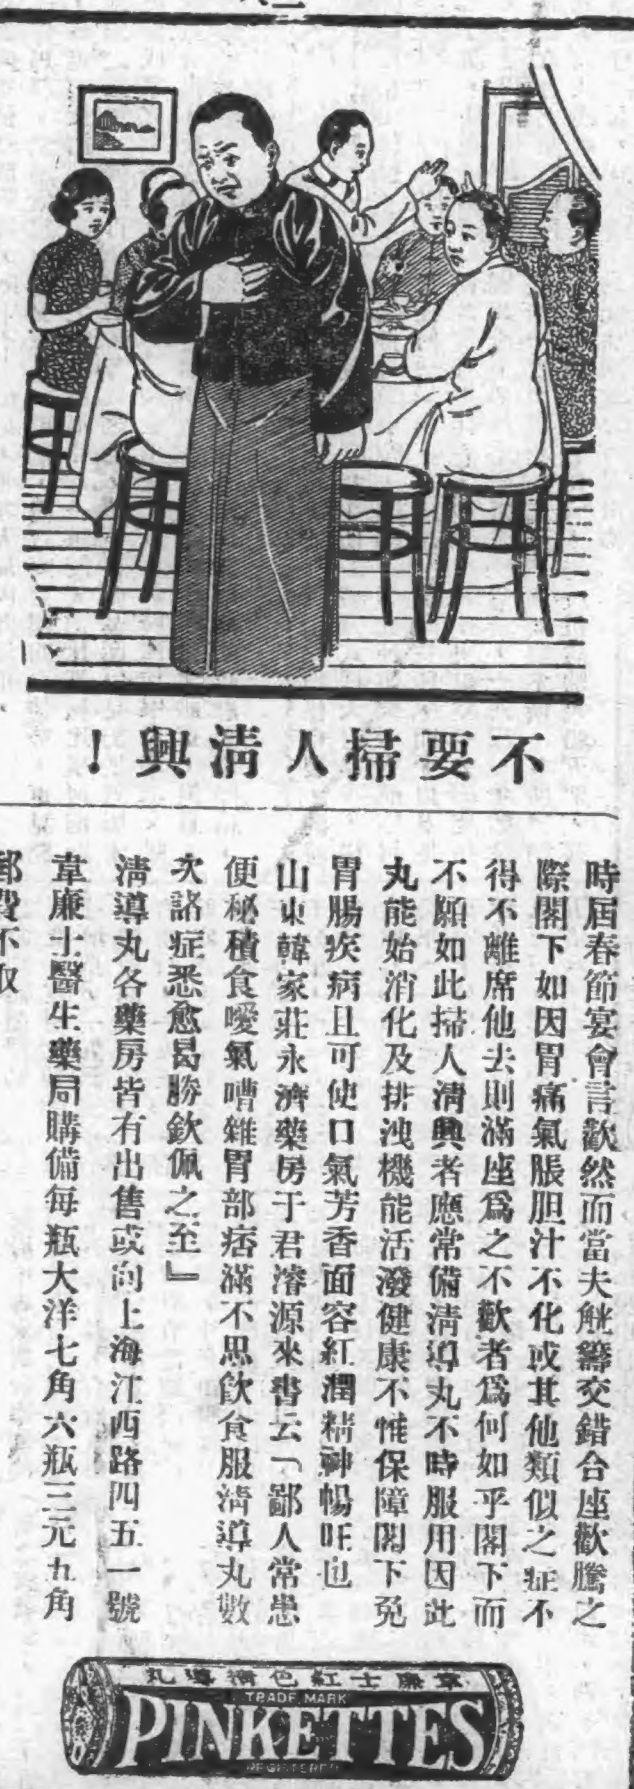 不要掃人清興！
時屆春節宴會言歡然而當夫觥籌交錯合座歡騰之
際閣下如因胃痛氣脹胆汁不化或其他類似之症不
得不離席他去則滿座爲之不歡者爲何如乎閣下而
不願如此掃人清興者應常備清導丸不時服用因此
丸能始消化及排洩機能活潑健康不惟保障閣下免
胃腸疾病且可使口氣芳香面容紅潤精神暢旺也
山東韓家莊永濟藥房于君濬源來書云「鄙人常患
便秘積食噯氣嘈雜胃部痞滿不思飲食服清導丸數
次諸症悉愈曷勝欽佩之至』
清導丸各藥房皆有出售或向上海江西路四五一號
韋廉士醫生藥局購備每瓶大洋七角六瓶三元九角
郵費不取
韋廉士紅色清導丸
TRADE MARK
PINKETTES
REGISTERED